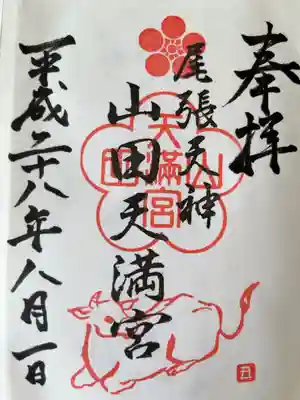 奉拝
尾張天神
山田天満宮
平成二十八年八月一日
山田天満宮
丑